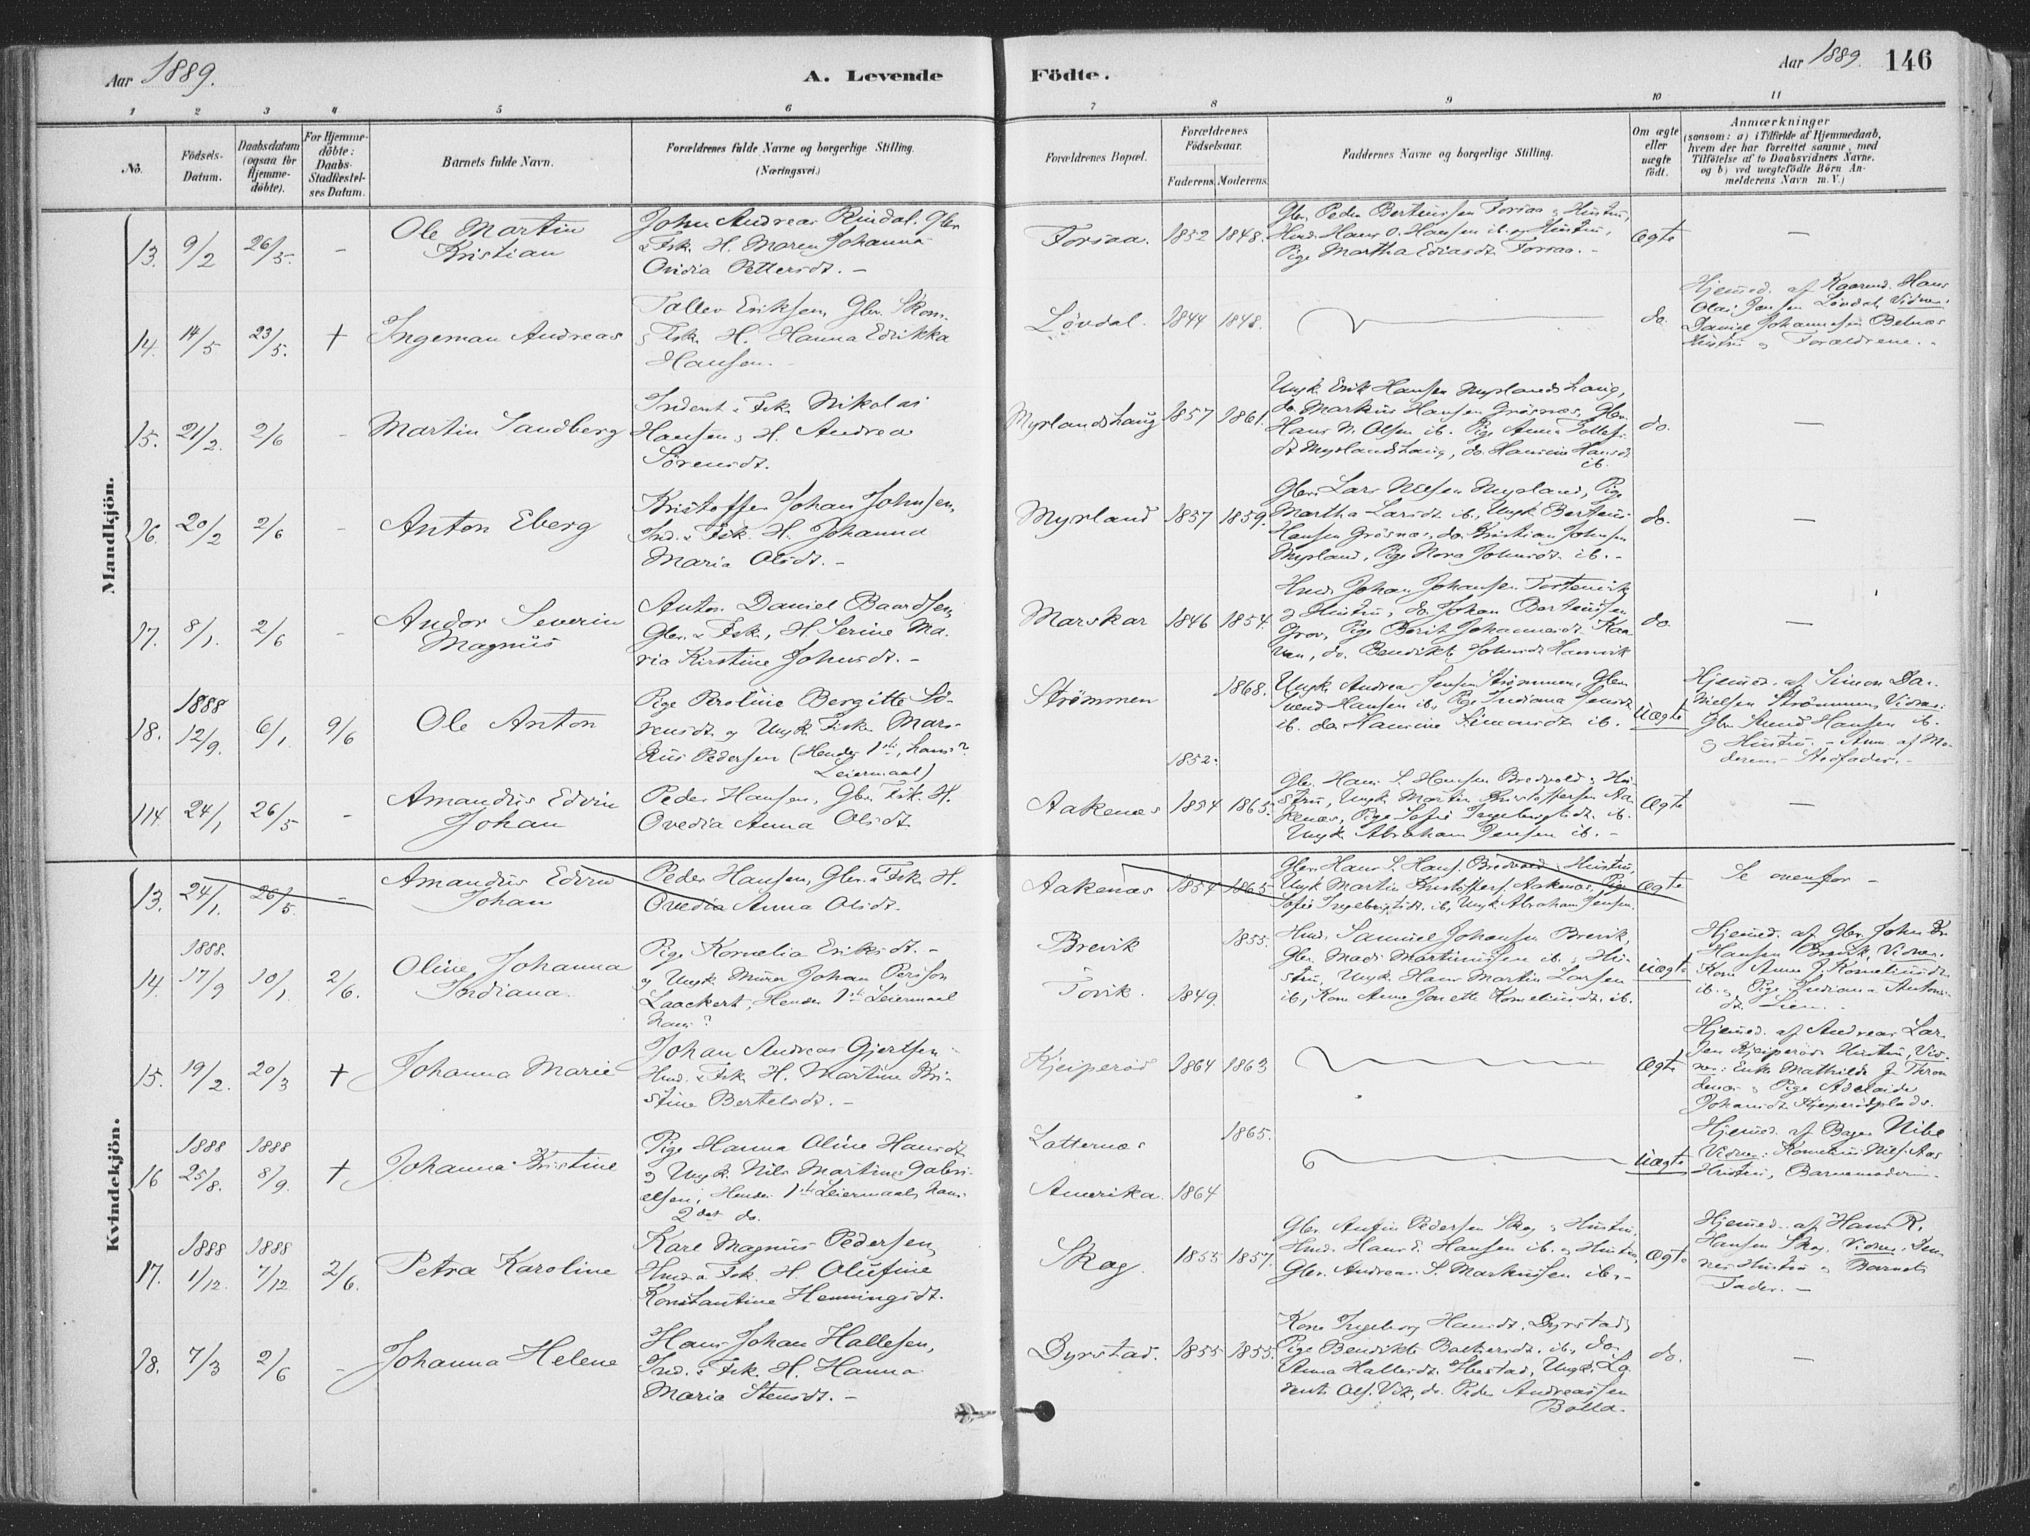 Aar 1889.
A. Levende
Födte.
Aar 1889.
146
1 2 3 4 5 6 7 8 9 10 11
No.
Födsels-Datum.
Daabsdatum (ogsaa for Hjemme-döbte).
For Hjemme-döbte: Daabs-Stadfæstel-ses Datum.
Barnets fulde Navn.
Forældrenes fulde Navne og borgerlige Stilling.
(Næringsvei.)
Forældrenes Bopæl.
Forældrenes Födselsaar.
Faderens. Moderens.
Faddernes Navne og borgerlige Stilling.
Om ægte eller uægte födt.
Anmærkninger
(saasom: a) i Tilfælde af Hjemmedaab,
hvem der har forrettet samme, med
Tilföielse af to Daabsvidners Navne,
og b) ved uægtefödte Börn An-
melderens Navn m. V.)
Mandkjön.
13. 9/2 26/5. -
Ole Martin
Kristian
John Andreas Rindal, Gbr.
& Fisk. H. Maren Johanna
Ovidia Pettersdt. -
Forsaa. 1852 1848.
Gbr. Peder Berteussen Forsaa & Hustru,
Hmd. Hans O. Hansen ib. og Hustru,
Pige Martha Ediasdt. Forsaa. -
Ægte
—
14. 14/5 23/5. +
Ingeman Andreas
Tollev Eriksen, Gbr. Skom.
& Fisk. H. Hanna Edrikka
Hansen. -
Løvdal. 1844 1848.
do.
Hjemmed. af Kaarmd. Hans
Olai Jensen Løvdal, Vidner:
Daniel Johannesen Belnæs
Hustru & Forældrene. -
15. 21/2. 2/6 -
Martin Sandberg
Inderst & Fisk. Nikolai
Hansen & H. Andrea
Sørensdt.
Myrlandshaug 1857 1861.
Ungk. Erik Hansen Myrlandshaug,
do. Markus Hansen Grøsnæs, Gbr.
Hans N. Olsen ib. Pige Anna Tolles-
dt. Myrlandshaug, do. Hansine Hansdt.
ib.
do.
—
16. 20/2 2/6 -
Anton Eberg
Kristoffer Johan Johnsen,
Ind. & Fisk. H. Johanna
Maria Olsdt. -
Myrland 1857 1859.
Gbr. Lars Nilsen Myrland, Pige
Martha Larsdt. ib., Ungk. Berteus
Hansen Grøsnæs, do. Kristian Johnsen
Myrland, Pige Nora Johnsdt. ib. -
do.
—
17. 8/1. 2/6 -
Andor Severin
Magnus
Anton Daniel Baardsen,
Gbr. & Fisk., H. Serine Ma-
ria Kirstine Johnsdt. -
Marskar 1846 1854.
Hmd. Johan Johansen
& Hustru, do. Johan Berteussen
Grov, Pige Berit Johannesdt.
do. Benedikte Johnsdt. Hamvik
do.
—
18. 1888 12/9. 6/1. 9/6
Ole Anton
Pige Peroline Bergitte Sö-
rensdt. og Ungk. Fisk. Mar-
kus Pedersen (Hendes 1ste, hans?
Leiermaal)
Strømmen 1868.
1852.
Ungk. Andreas Jensen Strømmen, Gbr.
Svend Hansen ib., Pige Indiana Jensdt.
ib. do. Hansine Simonsdt. ib.
Uægte
Hjemmed. af Simon Da-
nielsen Strømmen, Vidner:
Gbr. Svend Hansen ib.
& Hustru. - Anm. af Mo-
derens Stedfader. -
114. 24/1 26/5 -
Amandus Edvin
Johan
Peder Hansen, Gbr. Fisk. H.
Ovedia Anna Olsdt.
Aakenes 1854 1865.
Gbr. Hans S. Hansen Bredvold & Hu-
stru, Ungk. Martin Kristoffersen Aa-
kenæs, Pige Sofie Ingebrigtsdt. ib.
Ungk. Abraham Jensen ib. -
Ægte
—
Kvindekjön.
13. 24/1. 26/5. -
Amandus Edvin
Johan
Peder Hansen, Gbr. & Fisk. H.
Ovedia Anna Olsdt.
Aakenæs 1854 1865
Gbr. Hans S. Hans. Bredvold & Hustru,
Ungk. Martin Kristoffers. Aakenæs, Pige
Sofie Ingebrigtsdt. ib., Ungk. Abraham Jensen.
Ægte
Se ovenfor -
14. 1888. 17/9 10/1 2/6.
Oline Johanna
Indiana.
Pige Kornelia Eriksdt. -
& Ungk. Murer Johan Persson
Laackert, Hendes 1ste Leiermaal
hans?
Brevik 1855.
Tovik. 1849.
Hmd. Samuel Johansen Brevik,
Gbr. Mads Martinussen ib. & Hu-
stru, Ungk. Hans Martin Larsen
ib., Kone Anne Jonette Korneliusdt. ib.
Uægte
Hjemmed. af Gbr. John
Hansen Brevik, Vidner:
Kone Anne J. Korneliusdt.
ib. & Pige Indiana Antoni-
dt. Lien. -
15. 19/2. 20/3 +
Johanna Marie
Johan Andreas Gjertsen
Hmd. & Fisk. H. Martine Kri-
stine Bertelsdt. -
Kjeiperød 1864 1863
Ægte
Hjemmed. af Andreas Lar-
sen Kjeiperøds Hustru, Vid-
ner: Enke Mathilde J. Thron-
denæs & Pige Adelaide
Johansdt. Kjeiperødplads.
16 1888 25/8. 1888 8/9. +
Johanna Kristine
Pige Hanna Oline Hansdt.
& Ungk. Nils Martinus Gabri-
elsen, Hendes 1ste Leiermaal, hans
2det do.
Latternæs 1865.
Amerika. 1864
Uægte
Hjemmed. af Bager Nibe
Vidner: Kornelius Nils. Aas
Hustru, Barnemoderen.
17. 1888 1/12. 1888 7/12 2/6.
Petra Karoline
Karl Magnus Pedersen,
Hmd. & Fisk. H. Olufine
Konstantine Henningsdt.
Skog. 1855 1857.
Gbr. Anfin Pedersen Skog & Hustru,
Hmd. Hans E. Hansen ib. & Hustru,
Gbr. Andreas S. Markussen ib. -
Ægte
Hjemmed. af Hans R.
Hansen Skog. Vidner: Den-
nes Hustru & Barnets
Fader. -
18. 7/3 2/6 -
Johanna Helene
Hans Johan Hallesen,
Ind. & Fisk. H. Hanna
Maria Stensdt. -
Dyrstad. 1855 1855.
Kone Ingeborg Hansdt. Dyrstad,
Pige Benedikte Baltzersdt. ib., do.
Anna Hallesdt. Ibestad, Ungk. La-
rents Ols. Vik, do. Peder Andreassen
Bolla.
do.
—